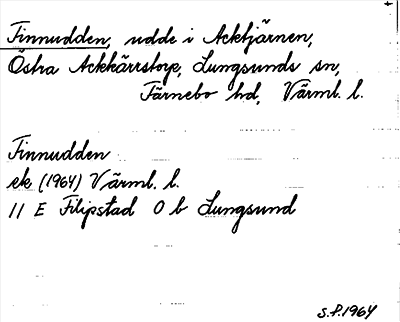 Finnudden, udde i Acktjärnen,
Östra Ackkärrstorp, Lungsunds sn,
Färnebo hd, Värml. l.
Finnudden
ek (1964) Värml. l.
11 E Filipstad 0 b Lungsund
S.P. 1964